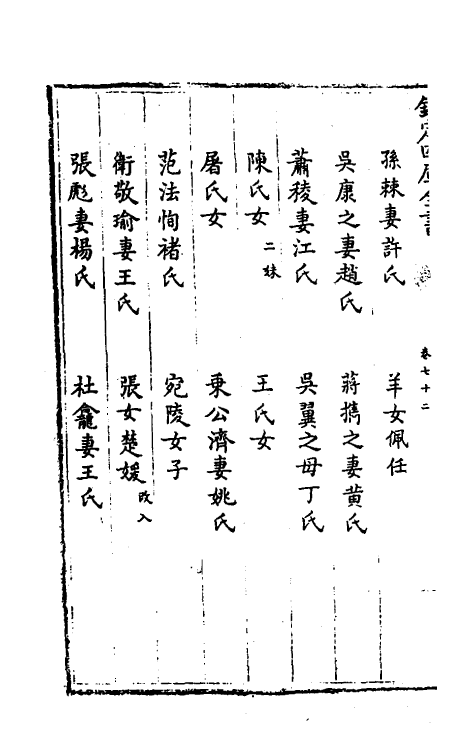 欽定四庫全書
卷七十二
孫棘妻許氏 羊女佩任
吳康之妻趙氏 蔣擕之妻黄氏
蕭稜妻江氏 吳翼之母丁氏
陳氏女二妹 王氏女
屠氏女 乗公濟妻姚氏
范法恂禇氏 宛陵女子
衛敬瑜妻王氏 張女楚媛改入
張彪妻楊氏 杜龕妻王氏